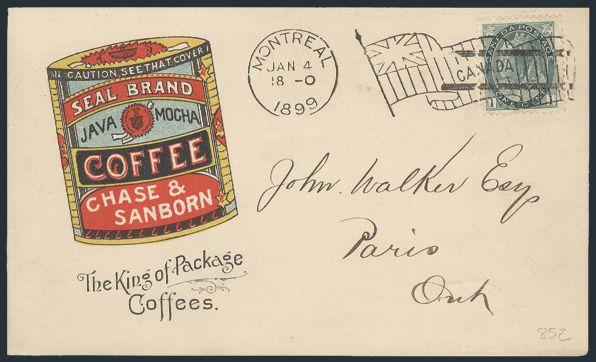 IN CAUTION. SEE THAT COVER
SEAL BRAND
JAVA MOCHA
COFFEE
CHASE &
SANBORN
The King of Package
Coffees.
MONTREAL
JAN 4
18 - 0
1899
CANADA
CANADA POSTAGE
John Walker Esq
Paris
Ont
852